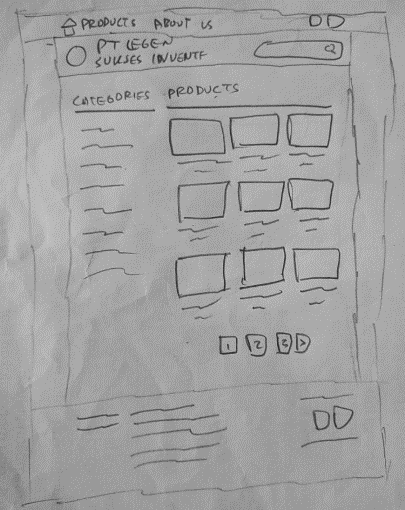 PRODUCTS ABOUT US
PT LEGEN
SUKSES INVENTF
CATEGORIES PRODUCTS
1 2 3 >